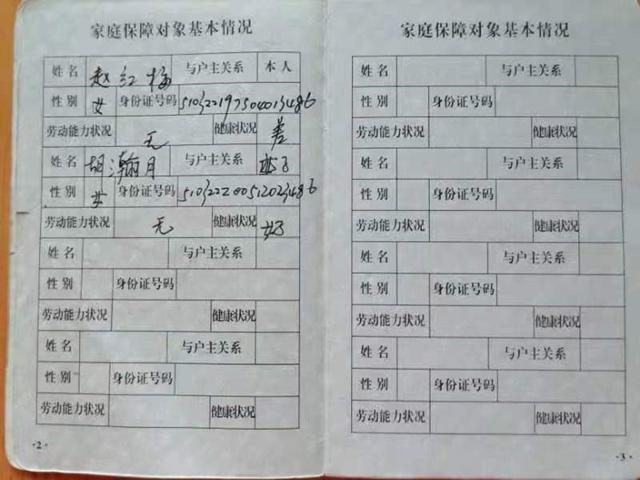 家庭保障对象基本情况
姓名 赵红梅 与户主关系 本人
性别 女 身份证号码
劳动能力状况 无 健康状况 差
姓名 胡瀚月 与户主关系
性别 女 身份证号码
劳动能力状况 无 健康状况 好
姓名 与户主关系
性别 身份证号码
劳动能力状况 健康状况
姓名 与户主关系
性别 身份证号码
劳动能力状况 健康状况
·2·
家庭保障对象基本情况
姓名 与户主关系
性别 身份证号码
劳动能力状况 健康状况
姓名 与户主关系
性别 身份证号码
劳动能力状况 健康状况
姓名 与户主关系
性别 身份证号码
劳动能力状况 健康状况
姓名 与户主关系
性别 身份证号码
劳动能力状况 健康状况
·3·